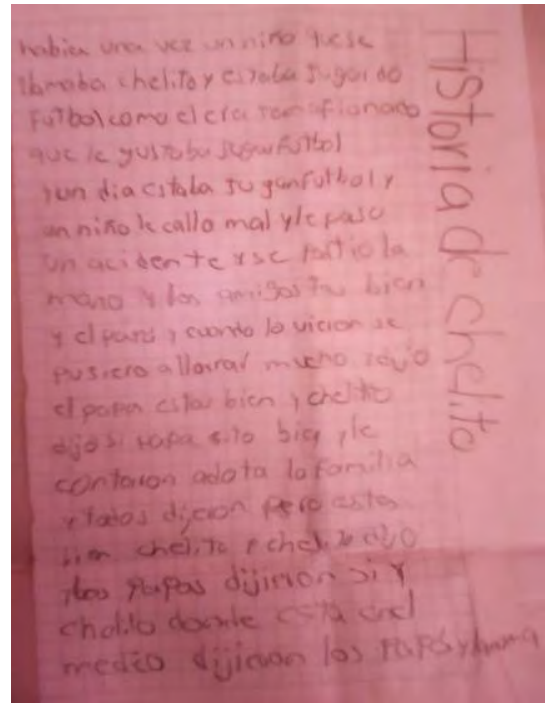 Historia de chelito
habia una vez un niño que se
llamaba chelito y estaba jugando
futbol como el era
que le gustaba jugar futbol
y un dia estaba jugan futbol y
un niño le callo mal y le paso
un acidente y se partio la
mano y los amigos bien
y el y cuando lo vieron se
pusiero a llorar mucho
el papa estas bien y chelito
dijo si papa bien y le
contaron a la familia
y todos dijeron pero estas
bien chelito y chelito dijo
los papas dijiron si y
chelito donde esta
medico dijieron los papas y